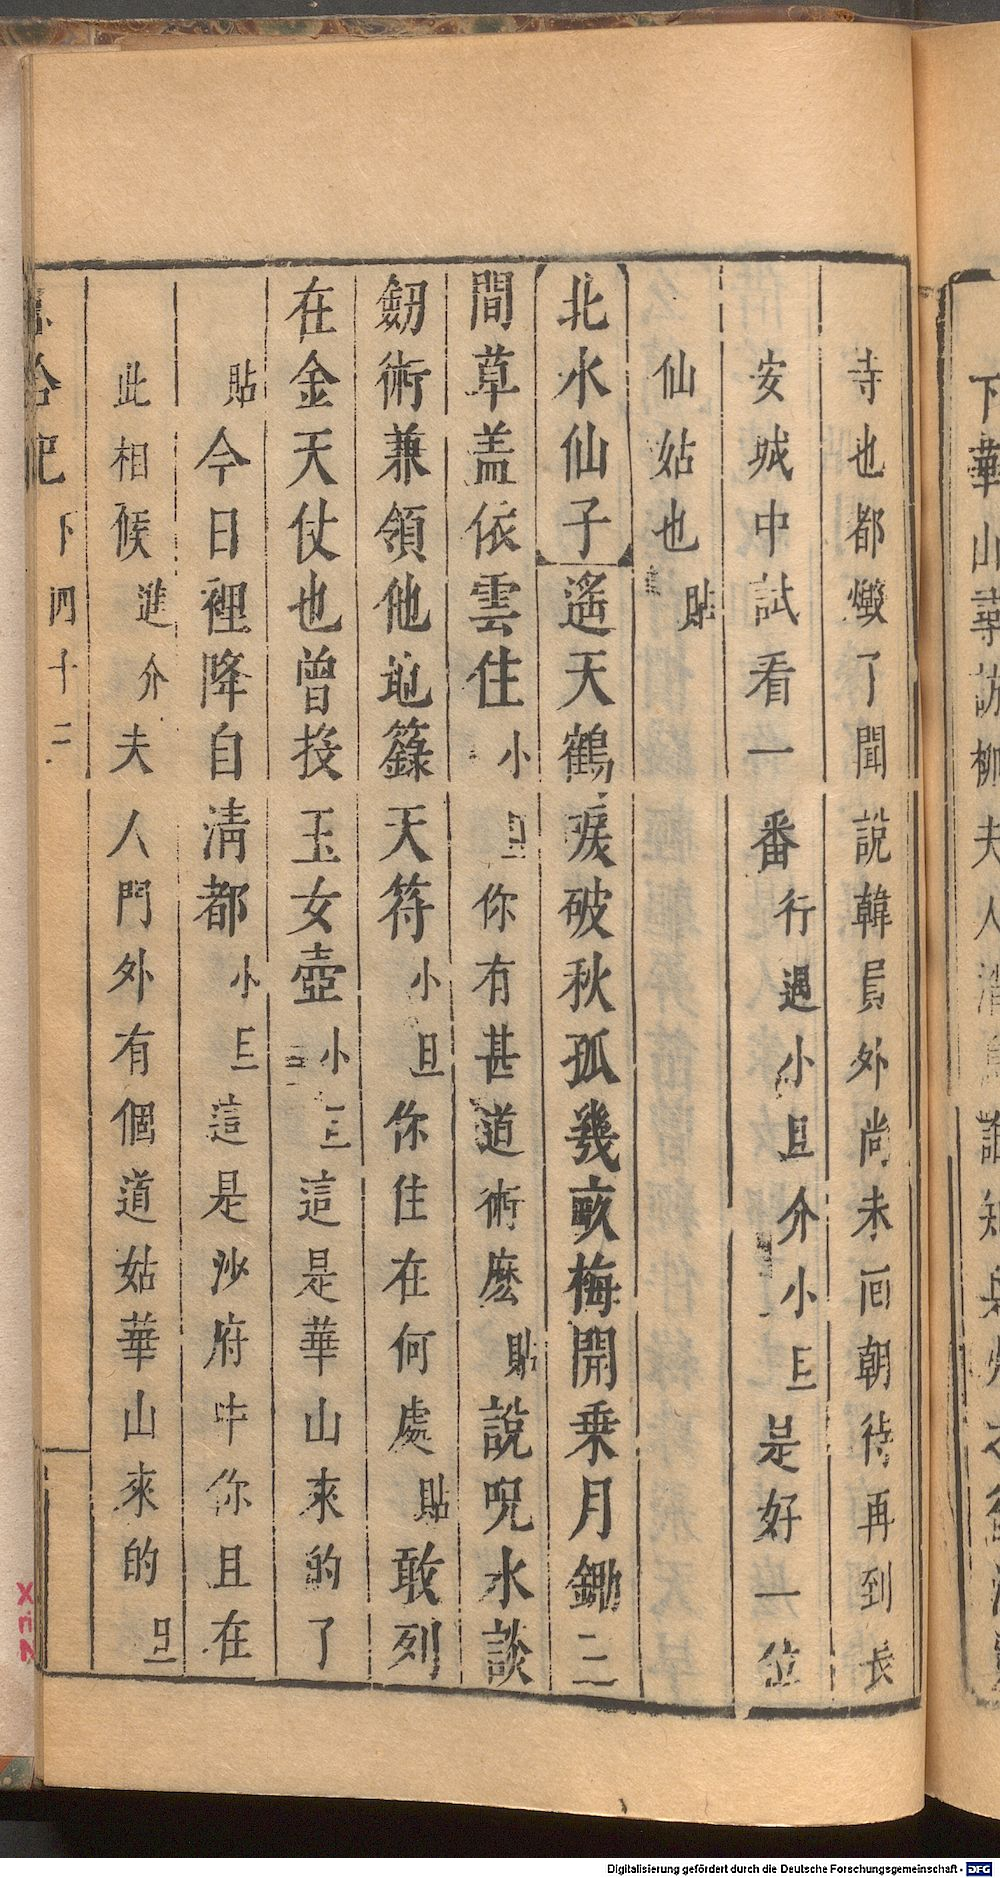 下華山尋訪柳夫人消息
寺也都燬了聞說韓員外尚未回朝待再到長
安城中試看一番行遇小旦介小旦是好一位
仙姑也貼
北水仙子遙天鶴淚破秋孤幾畝梅開乗月鋤二
間草盖依雲住小旦你有甚道術麽貼說呪水談
劒術兼領他地籙天符小旦你住在何處貼敢列
在金天仗也曾投玉女壺小旦這是華山來的了
貼今日裡降自清都小旦這是沙府中你且在
此相候進介夫人門外有個道姑華山來的旦
合記 下 四十二
Digitalisierung gefördert durch die Deutsche Forschungsgemeinschaft - DFG